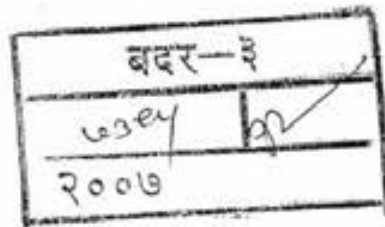 बदर—३
७३९५
२००७